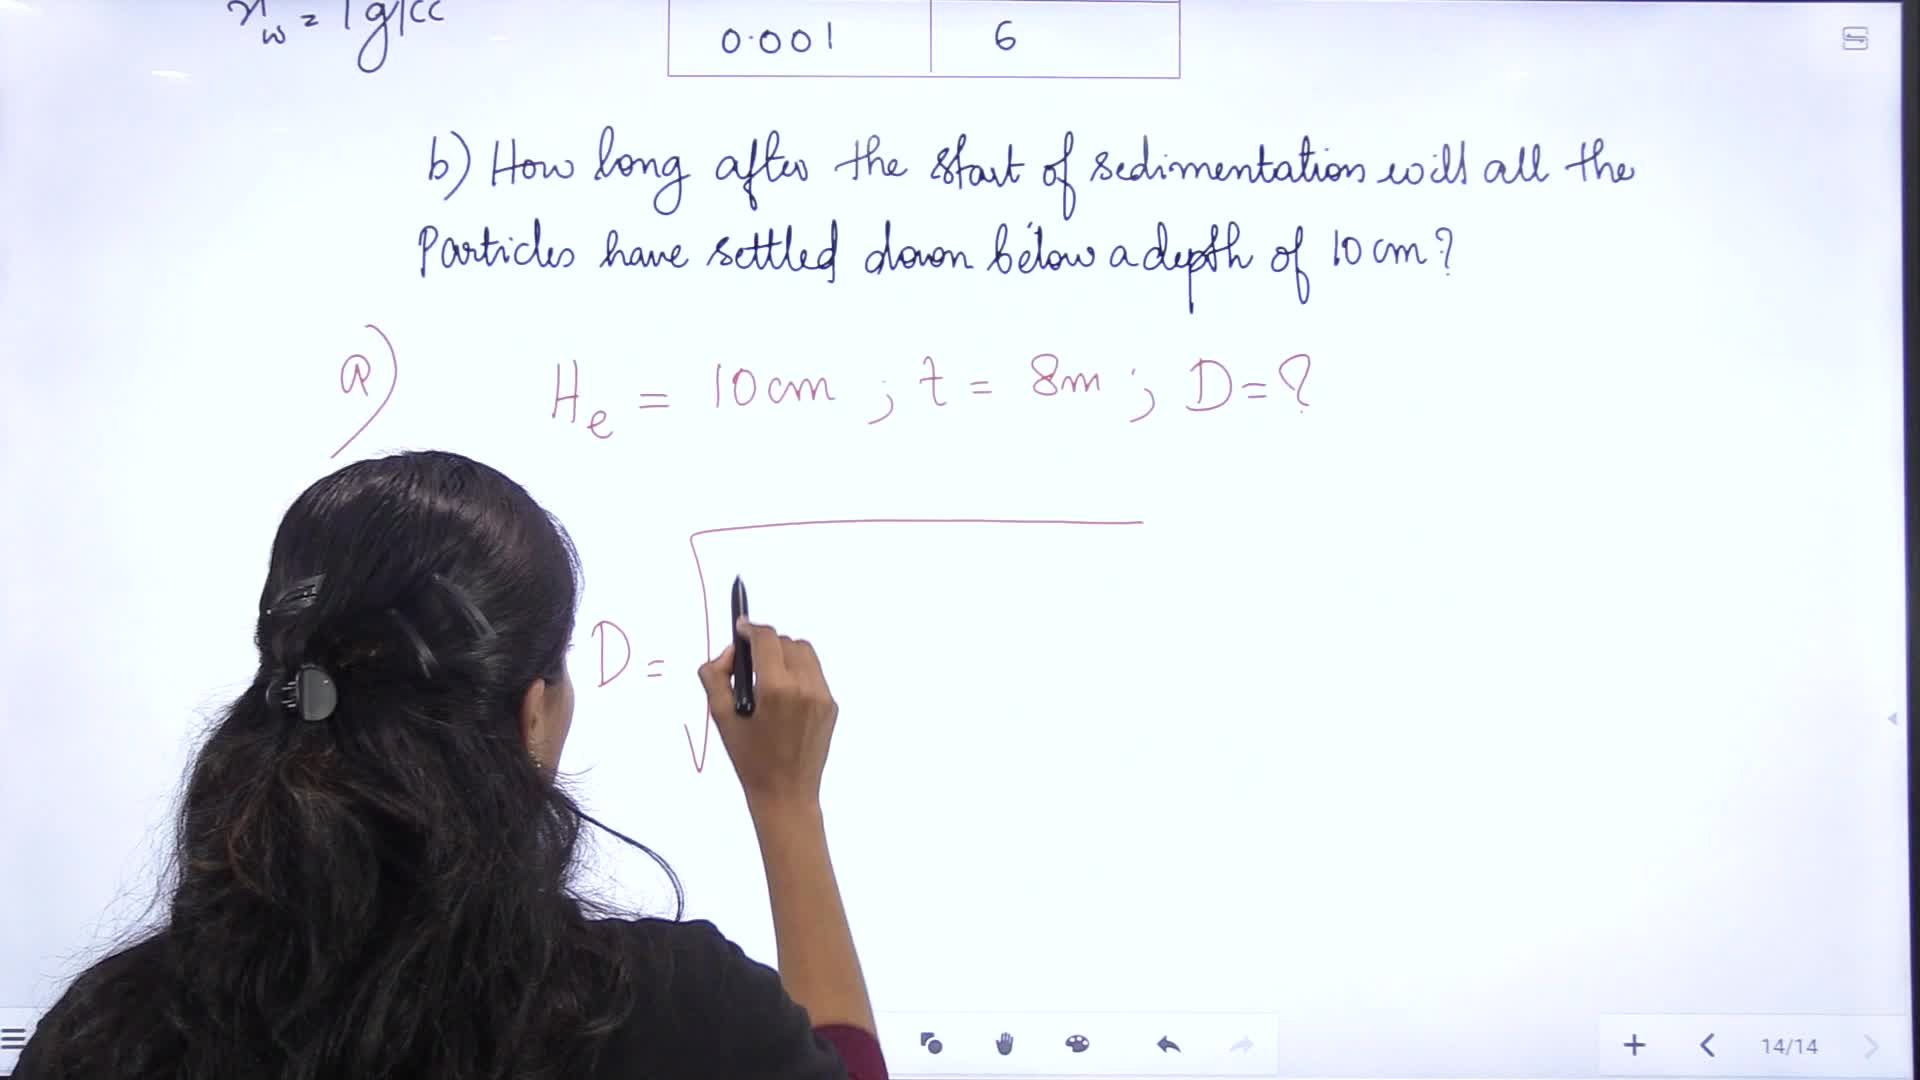 γw = 1g/cc
0.001 6
b) How long after the start of sedimentation will all the
Particles have settled down below a depth of 10 cm?
a) He = 10 cm ; t = 8m ; D = ?
D = √
14/14